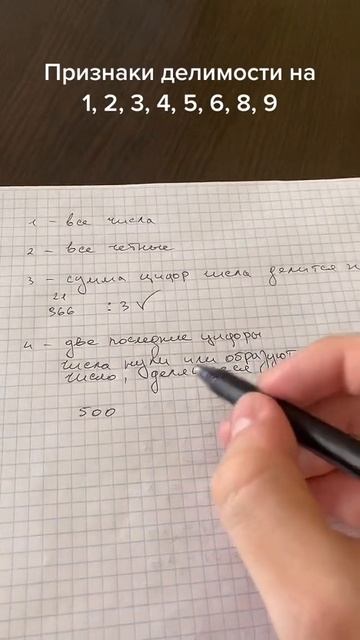 Признаки делимости на
1, 2, 3, 4, 5, 6, 8, 9
1 - все числа
2 - все четные
3 - сумма цифр числа делится н
21
966 : 3 ✓
4 - две последние цифры
числа нули или образуют
число,
500